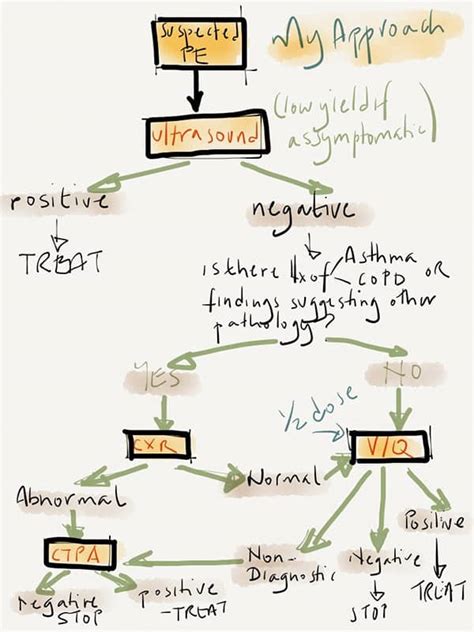 Suspected
PE
My Approach
ultrasound
(low yield if
assymptomatic)
positive
TREAT
negative
is there Hx of Asthma
COPD OR
findings suggesting other
pathology?
YES
NO
1/2 dose
CXR
V/Q
Abnormal
Normal
CTPA
Non-
Diagnostic
Negative
STOP
Positive
TREAT
negative
STOP
positive
-TREAT